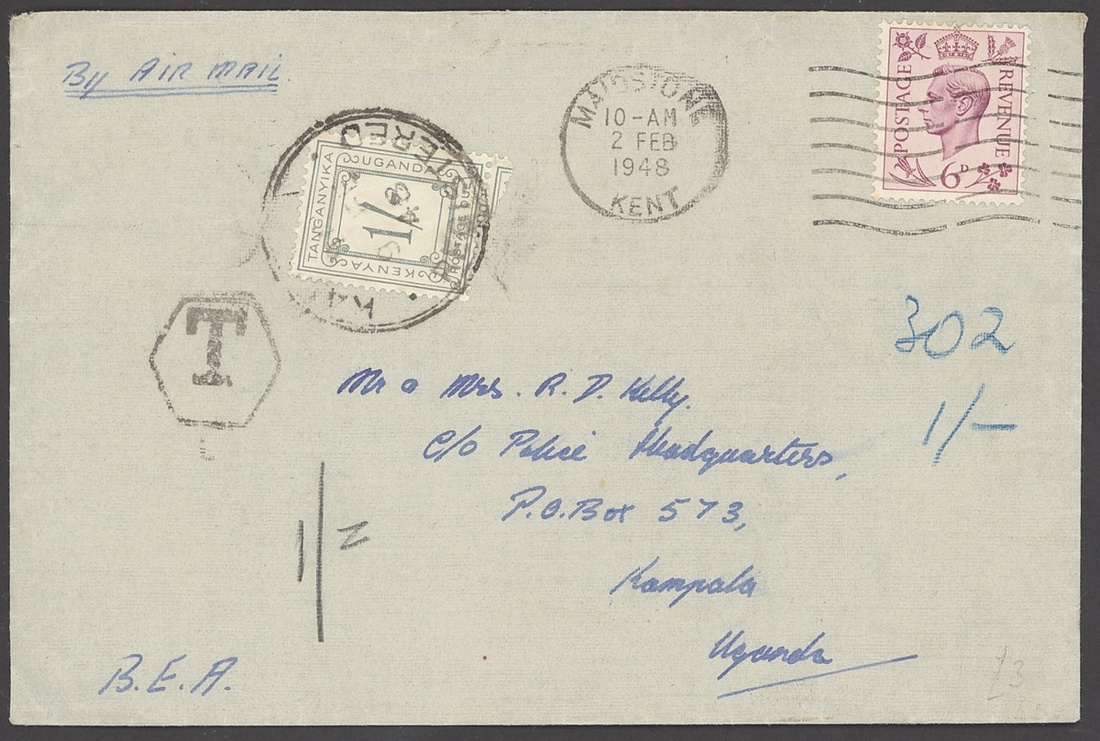 By AIR MAIL
MAIDSTONE
10-AM
2 FEB
1948
KENT
POSTAGE
REVENUE
6D
TANGANYIKA
UGANDA
KENYA
POSTAGE DUE
1/-
T
302
1/-
Mr & Mrs. R. D. Kelly.
c/o Police Headquarters,
P.O. Box 573,
Kampala
Uganda
B.E.A.
£3